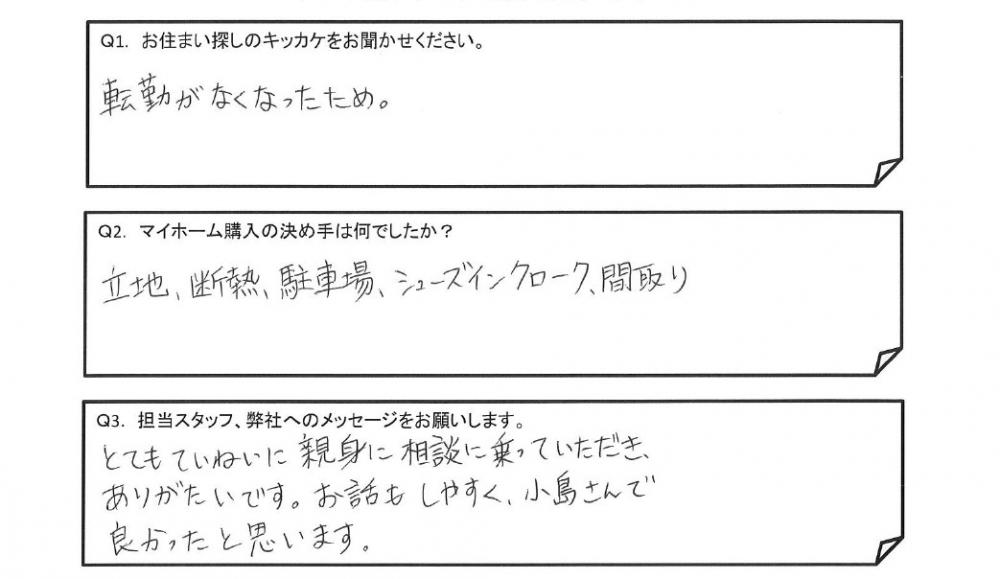 Q1. お住まい探しのキッカケをお聞かせください。
転勤がなくなったため。
Q2. マイホーム購入の決め手は何でしたか？
立地、断熱、駐車場、シューズインクローク、間取り
Q3. 担当スタッフ、弊社へのメッセージをお願いします。
とてもていねいに親身に相談に乗っていただき、
ありがたいです。お話もしやすく、小島さんで
良かったと思います。